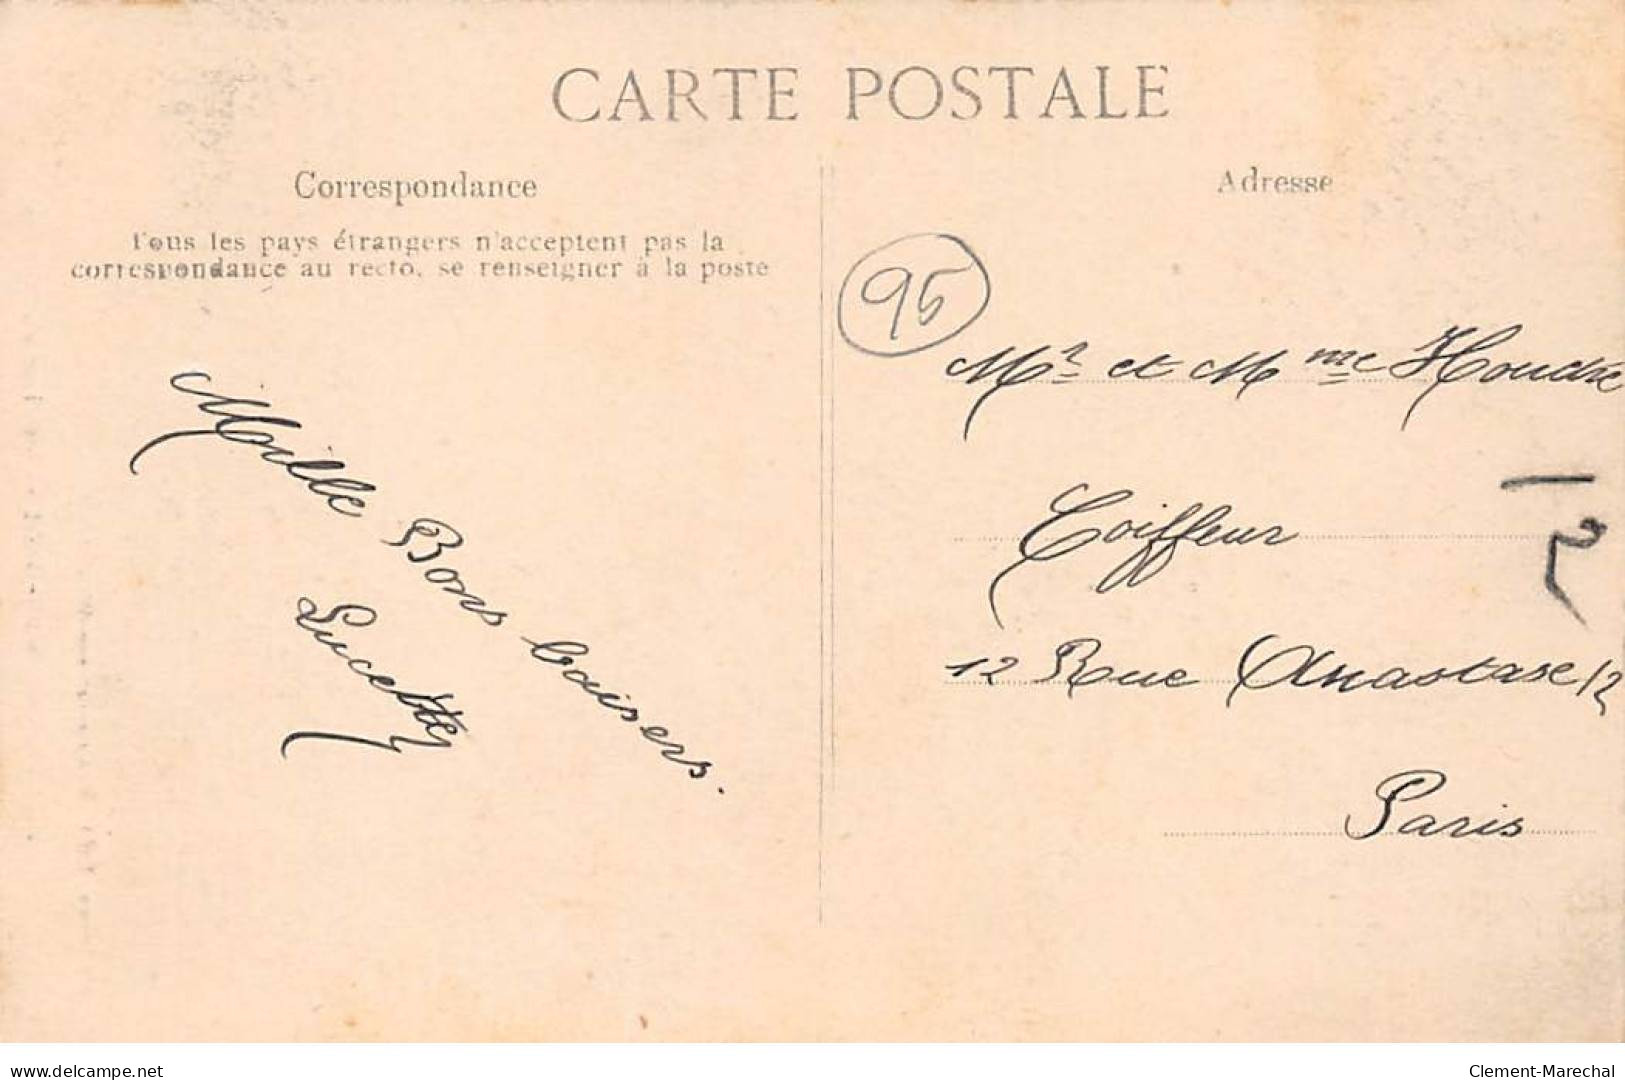 CARTE POSTALE
Correspondance
Tous les pays étrangers n'acceptent pas la
correspondance au recto, se renseigner à la poste
Mille Bons baisers.
Lucette
Adresse
95
Mr et Mme
Coiffeur
12 Rue Anastase 12
Paris
delcampe.net
Clement-Marechal